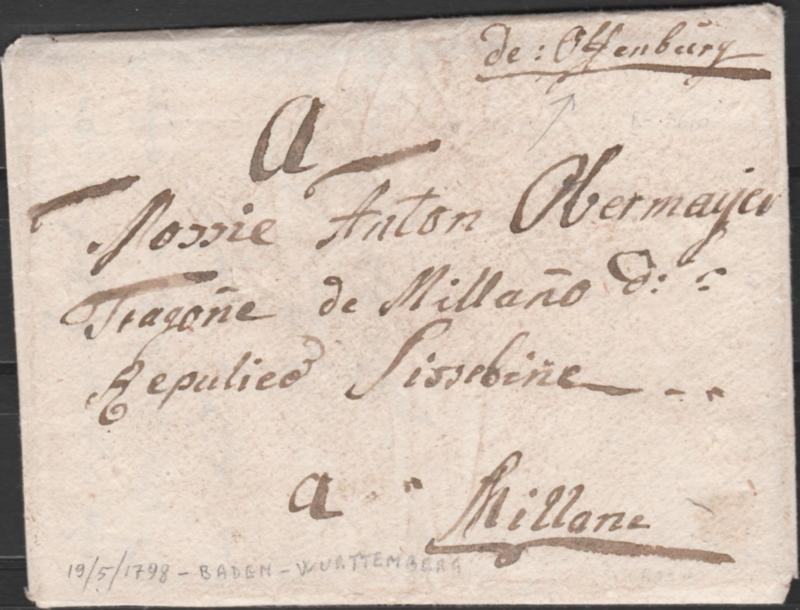 de: Offenburg
A
Mossie Anton Obermaÿer
Tragoñe de Millaño d:
Repulico Sissebiñe
a Millane
19/5/1798 - BADEN - WURTTEMBERG